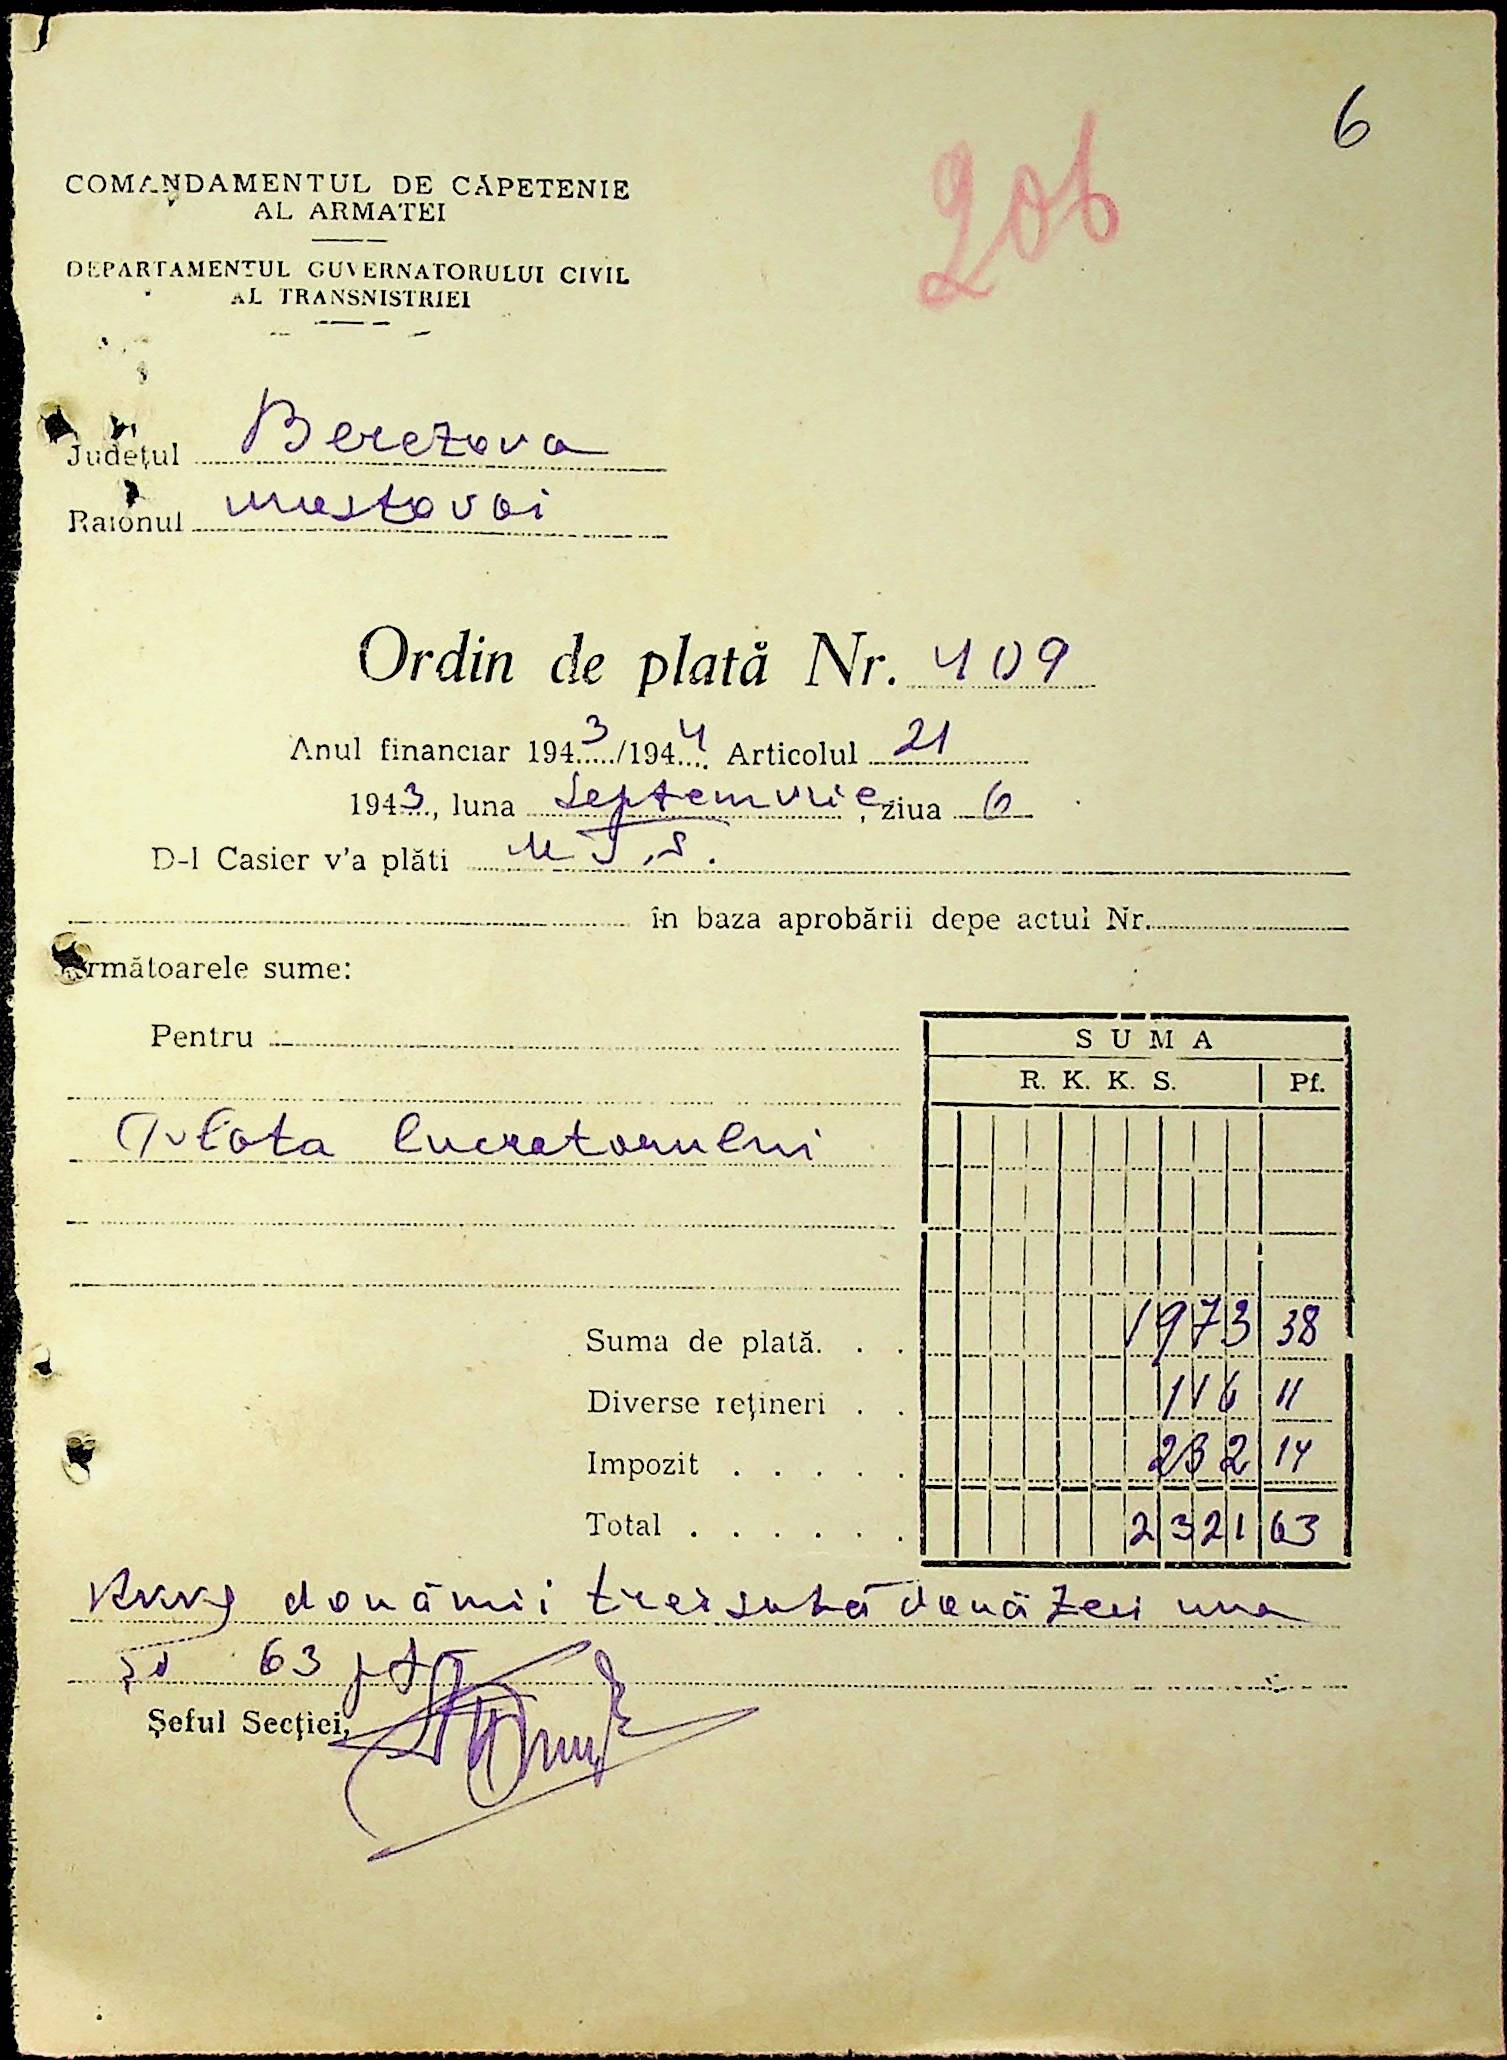 6
206
COMANDAMENTUL DE CĂPETENIE
AL ARMATEI
DEPARTAMENTUL GUVERNATORULUI CIVIL
AL TRANSNISTRIEI
Județul Berezova
Raionul Mostovoi
Ordin de plată Nr. 409
Anul financiar 1943/1944 Articolul 21
1943, luna Septemvrie, ziua 6
D-l Casier v'a plăti M.T.S.
în baza aprobării depe actul Nr.
următoarele sume:
Pentru
SUMA
R. K. K. S. Pf.
Plata lucratorului
Suma de plată. . . 1973 38
Diverse rețineri . . 116 11
Impozit . . . . . 232 14
Total . . . . . . 2321 63
RKKS douămii treisută douăzeci una
și 63 pf
Șeful Secției,